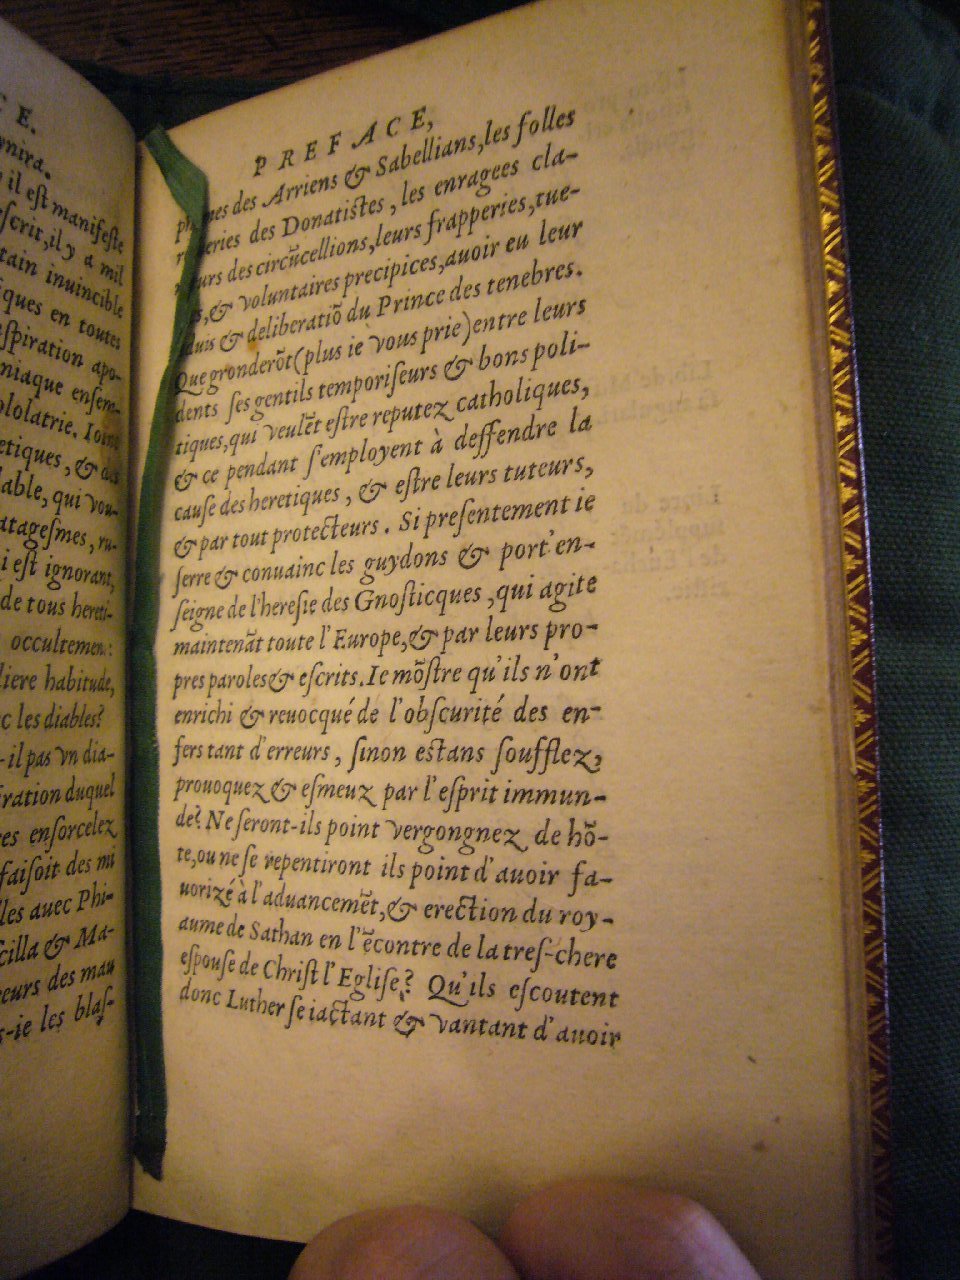 E.
il est manifeste
escrit, il y a mil
tain inuincible
ques en toutes
spiration apo-
niaque ensem-
ololatrie. Ioint
etiques, &
able, qui vou-
atagesmes, ru-
i est ignorant,
de tous hereti-
occultement:
liere habitude,
c les diables?
-il pas vn dia-
iration duquel
res ensorcelez
faisoit des mi
lles avec Phi-
scilla & Ma-
eurs des mau
s-ie les blas-
PREFACE,
phemes des Arriens & Sabellians, les folles
resueries des Donatistes, les enragees cla-
meurs des circũcellions, leurs frapperies, tue-
ries, & voluntaires precipices, auoir eu leur
aduis & deliberatiõ du Prince des tenebres.
Que gronderõt (plus ie vous prie) entre leurs
dents ses gentils temporiseurs & bons poli-
tiques, qui veulẽt estre reputez catholiques,
& ce pendant s'employent à deffendre la
cause des heretiques, & estre leurs tuteurs,
& par tout protecteurs. Si presentement ie
serre & conuainc les guydons & port'en-
seigne de l'heresie des Gnosticques, qui agite
maintenãt toute l'Europe, & par leurs pro-
pres paroles & escrits. Ie mõstre qu'ils n'ont
enrichi & reuocqué de l'obscurité des en-
fers tant d'erreurs, sinon estans soufflez,
prouoquez & esmeuz par l'esprit immun-
de? Ne seront-ils point vergongnez de hõ-
te, ou ne se repentiront ils point d'auoir fa-
uorizé à l'aduancemẽt, & erection du roy-
aume de Sathan en l'ẽcontre de la tres-chere
espouse de Christ l'Eglise? Qu'ils escoutent
donc Luther se iactant & vantant d'auoir